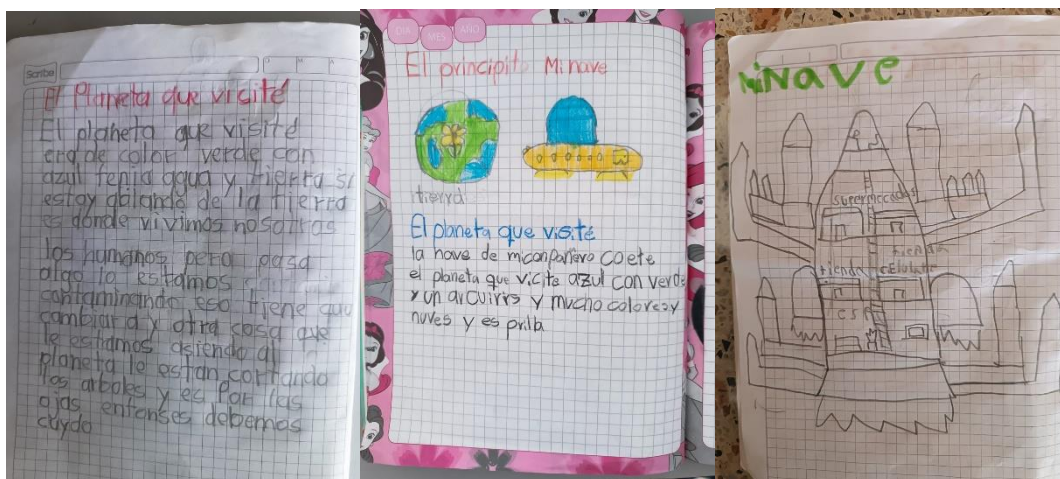 Scribe
El Planeta que vicité
El planeta que visité
era de color verde con
azul tenia agua y tierra si
estoy ablando de la tierra
es donde vivimos nosotros
los humanos pero pasa
algo lo estamos
contaminando eso tiene que
cambiar a y otra cosa que
le estamos asiendo al
planeta le estan cortando
los arboles y es Por las
ojas entonses debemos
cuydo
DIA MES AÑO
El principito Minave
tierra
El planeta que visité
la nave de micompañero coete
el planeta que vicite azul con verde
y un arcuirrs y mucho colores y
nuves y es prilla
miNave
supermercado
tienda
tienda celular